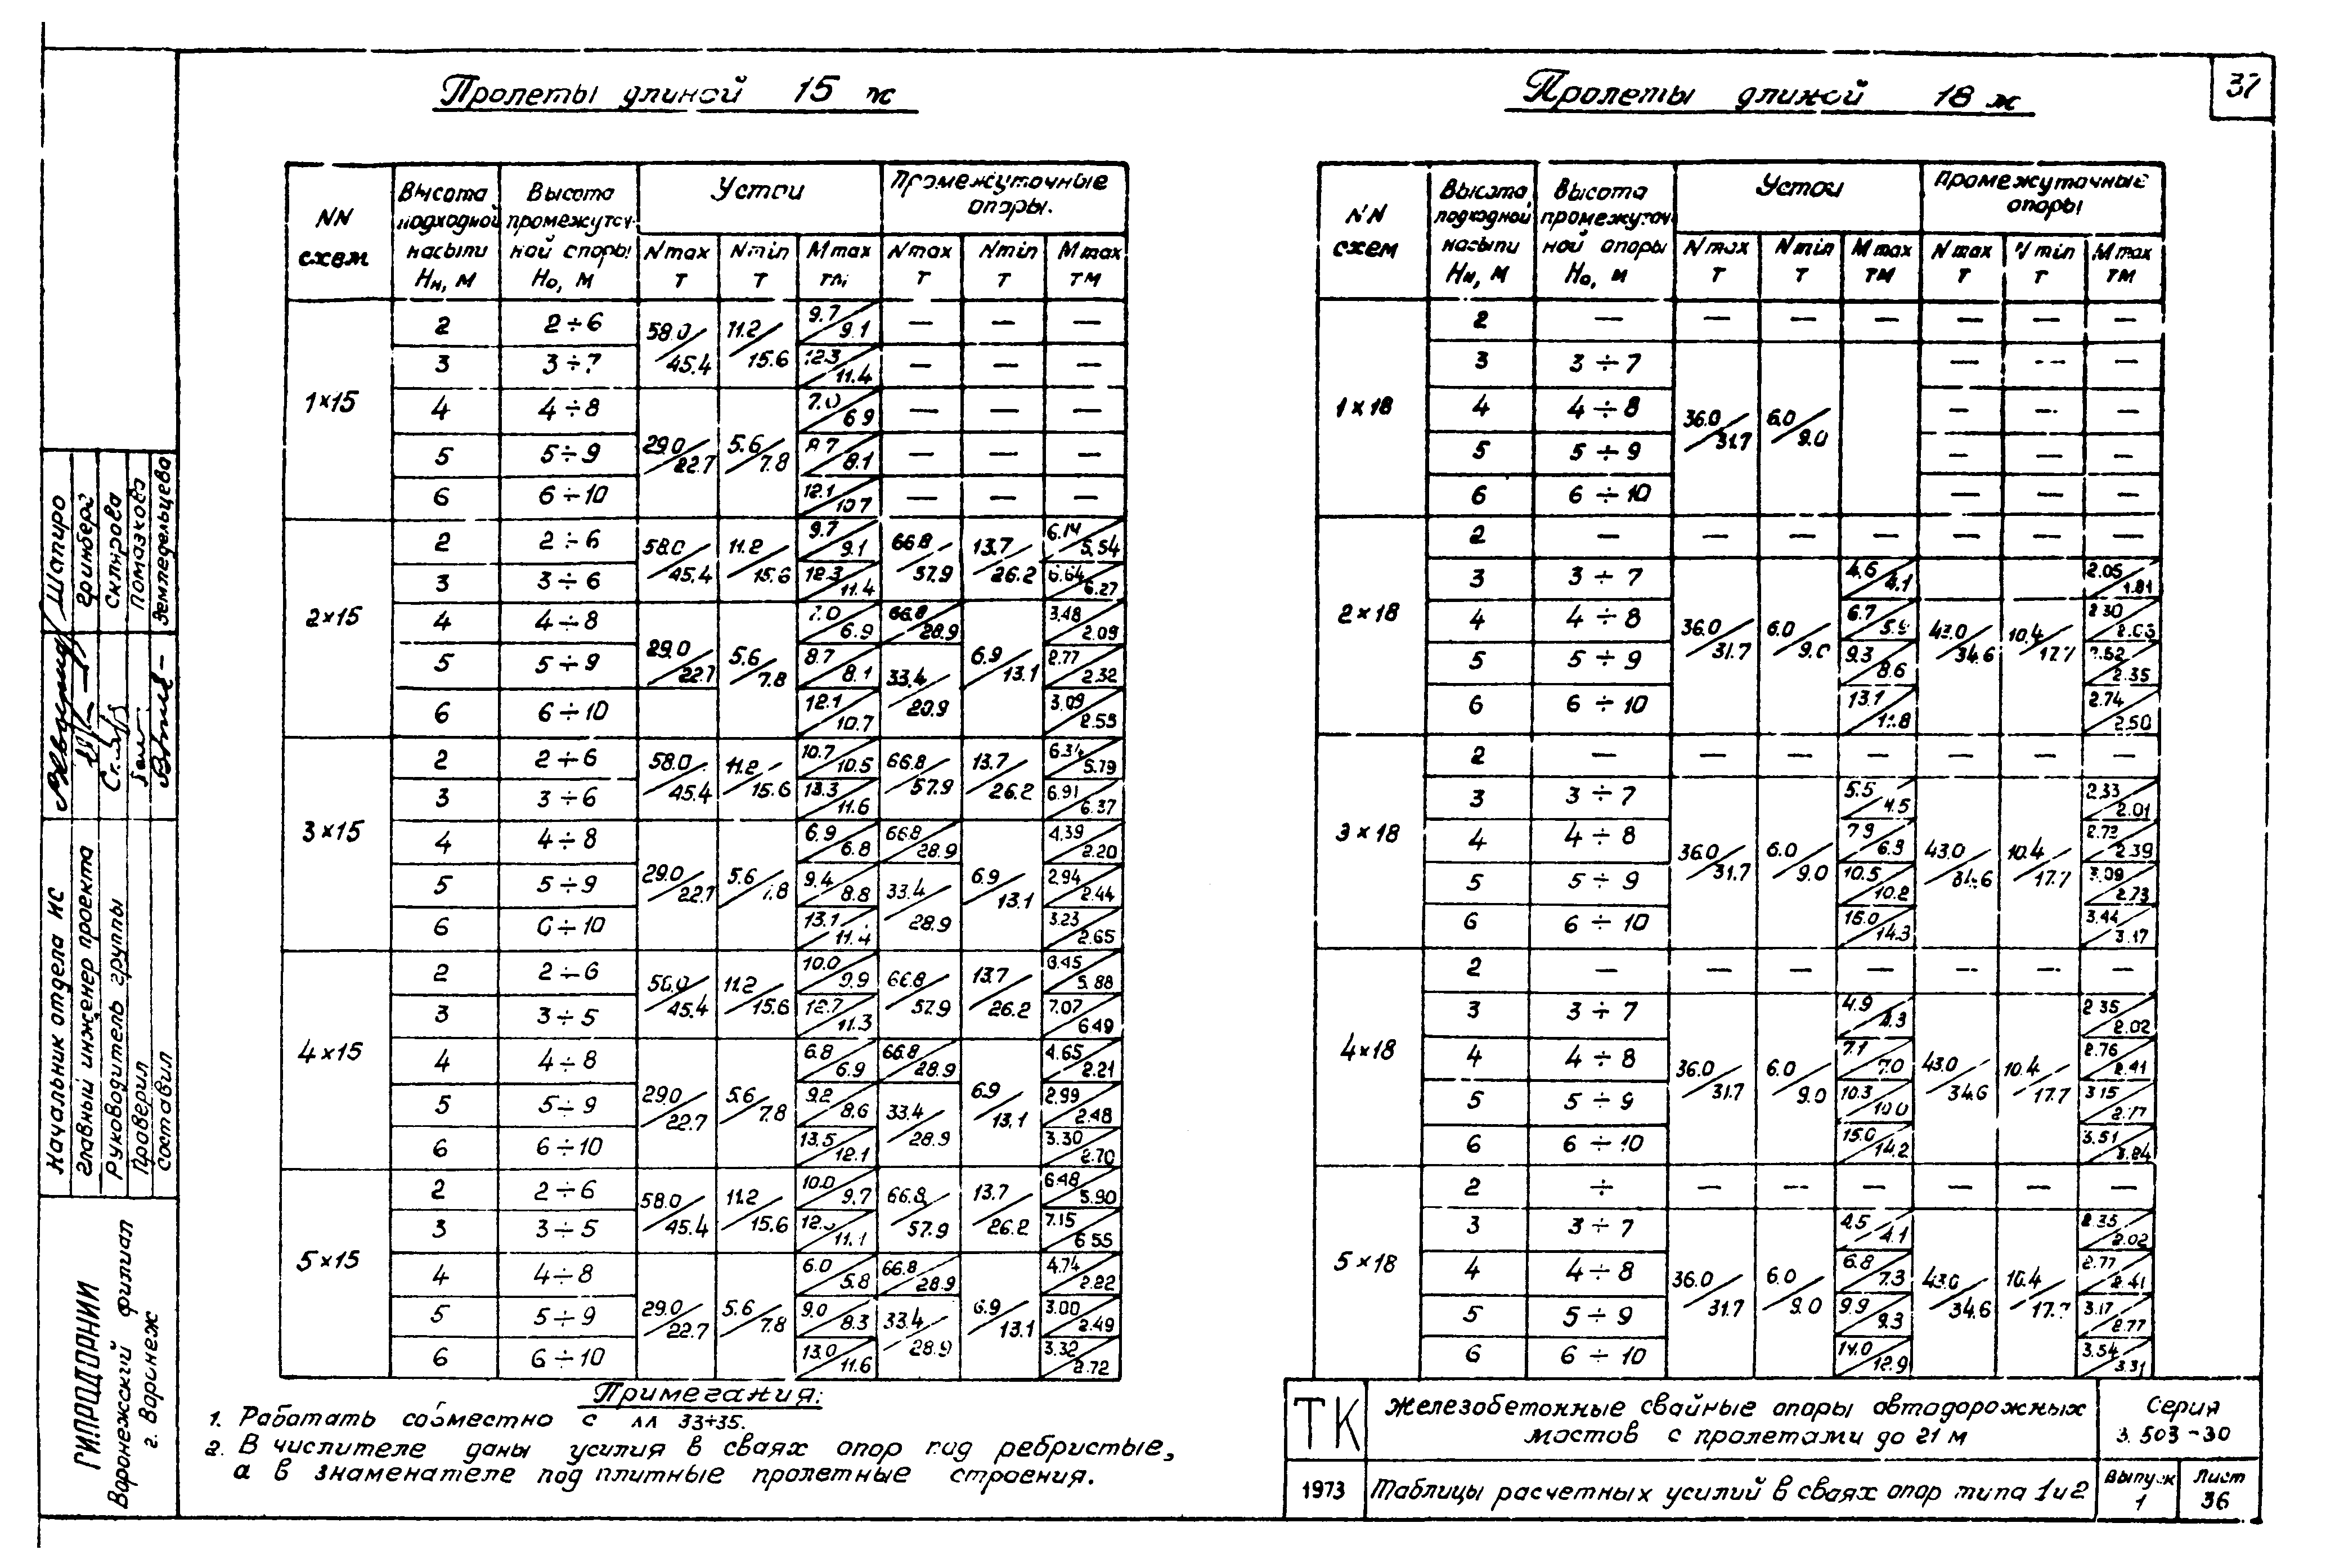 37
Пролеты длиной 15 м
NN схем | Высота подходной насыпи Нн, м | Высота промежуточной опоры Но, м | Устои | Промежуточные опоры.
Nmax т | Nmin т | Mmax тм | Nmax т | Nmin т | Mmax тм
1×15
2 | 2÷6 | 58.0/45.4 | 11.2/15.6 | 9.7/9.1 | — | — | —
3 | 3÷7 | 12.3/11.4 | — | — | —
4 | 4÷8 | 29.0/22.7 | 5.6/7.8 | 7.0/6.9 | — | — | —
5 | 5÷9 | 8.7/8.1 | — | — | —
6 | 6÷10 | 12.1/10.7 | — | — | —
2×15
2 | 2÷6 | 58.0/45.4 | 11.2/15.6 | 9.7/9.1 | 66.8/57.9 | 13.7/26.2 | 6.14/5.54
3 | 3÷6 | 12.3/11.4 | 6.64/6.27
4 | 4÷8 | 29.0/22.7 | 5.6/7.8 | 7.0/6.9 | 66.8/28.9 | 6.9/13.1 | 3.48/2.09
5 | 5÷9 | 8.7/8.1 | 33.4/28.9 | 2.77/2.32
6 | 6÷10 | 12.1/10.7 | 3.09/2.53
3×15
2 | 2÷6 | 58.0/45.4 | 11.2/15.6 | 10.7/10.5 | 66.8/57.9 | 13.7/26.2 | 6.34/5.79
3 | 3÷6 | 13.3/11.6 | 6.91/6.37
4 | 4÷8 | 29.0/22.7 | 5.6/7.8 | 6.9/6.8 | 66.8/28.9 | 6.9/13.1 | 4.39/2.20
5 | 5÷9 | 9.4/8.8 | 33.4/28.9 | 2.94/2.44
6 | 6÷10 | 13.1/11.4 | 3.23/2.65
4×15
2 | 2÷6 | 58.0/45.4 | 11.2/15.6 | 10.0/9.9 | 66.8/57.9 | 13.7/26.2 | 6.45/5.88
3 | 3÷5 | 12.7/11.3 | 7.07/6.49
4 | 4÷8 | 29.0/22.7 | 5.6/7.8 | 6.8/6.9 | 66.8/28.9 | 6.9/13.1 | 4.65/2.21
5 | 5÷9 | 9.2/8.6 | 33.4/28.9 | 2.99/2.48
6 | 6÷10 | 13.5/12.1 | 3.30/2.70
5×15
2 | 2÷6 | 58.0/45.4 | 11.2/15.6 | 10.0/9.7 | 66.8/57.9 | 13.7/26.2 | 6.48/5.90
3 | 3÷5 | 11.1 | 7.15/6.55
4 | 4÷8 | 29.0/22.7 | 5.6/7.8 | 6.0/5.8 | 66.8/28.9 | 6.9/13.1 | 4.74/2.22
5 | 5÷9 | 9.0/8.3 | 33.4/28.9 | 3.00/2.49
6 | 6÷10 | 13.0/11.6 | 3.32/2.72
Пролеты длиной 18 м
NN схем | Высота подходной насыпи Нн, м | Высота промежуточной опоры Но, м | Устои | Промежуточные опоры
Nmax т | Nmin т | Mmax тм | Nmax т | Nmin т | Mmax тм
1×18
2 | — | — | — | — | — | — | —
3 | 3÷7 | 36.0/31.7 | 6.0/9.0 | — | — | —
4 | 4÷8 | — | — | —
5 | 5÷9 | — | — | —
6 | 6÷10 | — | — | —
2×18
2 | — | — | — | — | — | — | —
3 | 3÷7 | 36.0/31.7 | 6.0/9.0 | 4.6/4.1 | 43.0/34.6 | 10.4/17.7 | 2.05/1.81
4 | 4÷8 | 6.7/5.9 | 2.30/2.03
5 | 5÷9 | 9.3/8.6 | 2.52/2.35
6 | 6÷10 | 13.1/11.8 | 2.74/2.50
3×18
2 | — | — | — | — | — | — | —
3 | 3÷7 | 36.0/31.7 | 6.0/9.0 | 5.5/4.5 | 43.0/34.6 | 10.4/17.7 | 2.33/2.01
4 | 4÷8 | 7.9/6.9 | 2.73/2.39
5 | 5÷9 | 10.5/10.2 | 3.09/2.73
6 | 6÷10 | 16.0/14.3 | 3.44/3.17
4×18
2 | — | — | — | — | — | — | —
3 | 3÷7 | 36.0/31.7 | 6.0/9.0 | 4.9/4.3 | 43.0/34.6 | 10.4/17.7 | 2.35/2.02
4 | 4÷8 | 7.1/7.0 | 2.76/2.41
5 | 5÷9 | 10.3/10.0 | 3.15/2.77
6 | 6÷10 | 15.0/14.2 | 3.51/3.24
5×18
2 | ÷ | — | — | — | — | — | —
3 | 3÷7 | 36.0/31.7 | 6.0/9.0 | 4.5/4.1 | 43.0/34.6 | 10.4/17.7 | 2.35/2.02
4 | 4÷8 | 6.8/7.3 | 2.77/2.41
5 | 5÷9 | 9.9/9.3 | 3.17/2.77
6 | 6÷10 | 14.0/12.9 | 3.54/3.31
Примечания:
1. Работать совместно с лл 33÷35.
2. В числителе даны усилия в сваях опор под ребристые,
а в знаменателе под плитные пролетные строения.
ТК
Железобетонные свайные опоры автодорожных
мостов с пролетами до 21 м
Серия
3.503-30
1973
Таблицы расчетных усилий в сваях опор типа 1 и 2
Выпуск
1
Лист
36
Начальник отдела ИС Шапиро
Главный инженер проекта Гринберг
Руководитель группы Склярова
Проверил Помазкова
Составил Земледельцева
ГИПРОДОРНИИ
Воронежский филиал
г. Воронеж